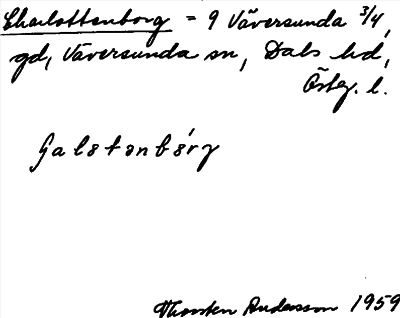 Charlottenborg = 9 Väversunda 3/4,
gd, Väversunda sn, Dals hd,
Österg. l.
Galstenbórg
Thorsten Andersson 1959